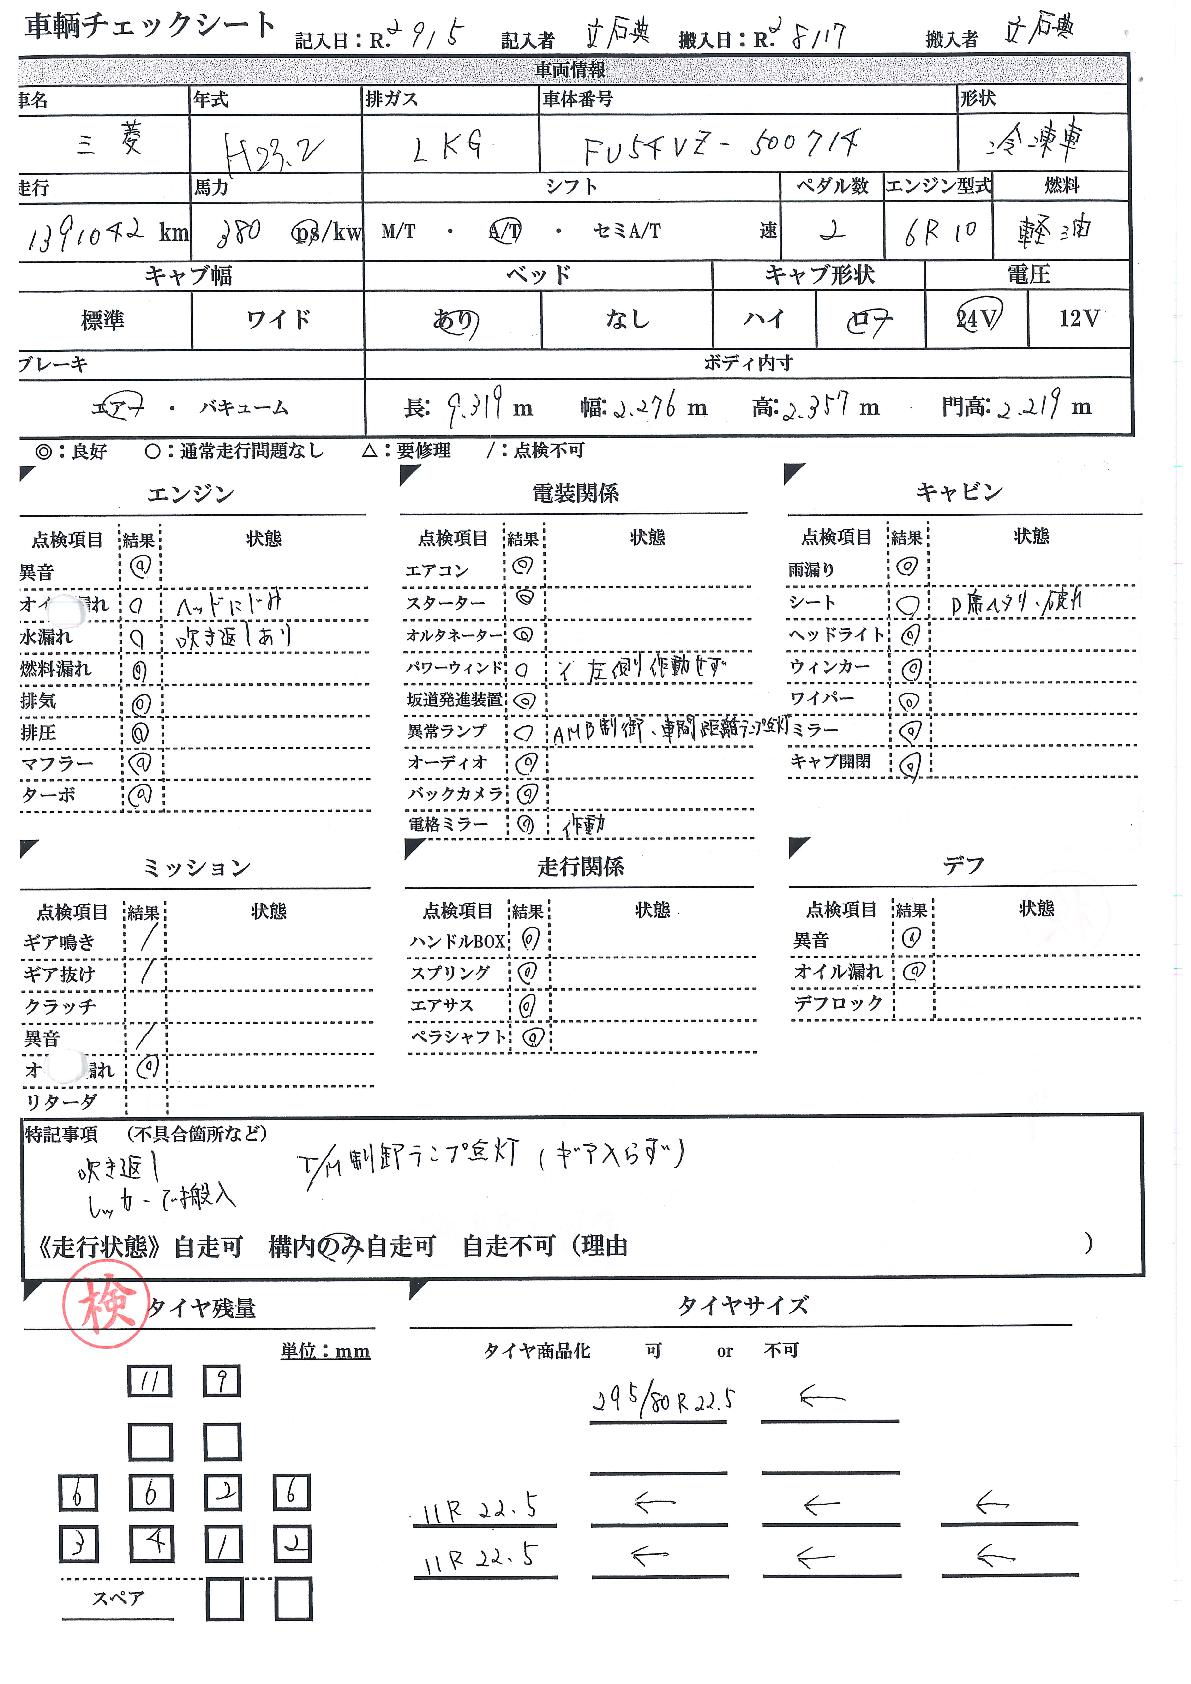 車輌チェックシート 記入日：R.2 9/5 記入者 立石典 搬入日：R.2 8/17 搬入者 立石典
車両情報
車名 年式 排ガス 車体番号 形状
三菱 H23.2 LKG FU54VZ-500714 冷凍車
走行 馬力 シフト ペダル数 エンジン型式 燃料
1391042 km 380 ps/kw M/T ・ A/T ・ セミA/T 速 2 6R10 軽油
キャブ幅 ベッド キャブ形状 電圧
標準 ワイド あり なし ハイ ロー 24V 12V
ブレーキ ボディ内寸
エアー ・ バキューム 長：9.319 m 幅：2.276 m 高：2.357 m 門高：2.219 m
◎：良好 〇：通常走行問題なし △：要修理 /：点検不可
エンジン
点検項目 結果 状態
異音 ◎
オイル漏れ 〇 ヘッドにじみ
水漏れ 〇 吹き返しあり
燃料漏れ ◎
排気 ◎
排圧 ◎
マフラー ◎
ターボ ◎
電装関係
点検項目 結果 状態
エアコン ◎
スターター ◎
オルタネーター ◎
パワーウィンド 〇 左側作動せず
坂道発進装置 ◎
異常ランプ 〇 AMB制御、車間距離ランプ点灯
オーディオ ◎
バックカメラ ◎
電格ミラー ◎ 作動
キャビン
点検項目 結果 状態
雨漏り ◎
シート 〇 D席ヘタリ、破れ
ヘッドライト ◎
ウィンカー ◎
ワイパー ◎
ミラー ◎
キャブ開閉 ◎
ミッション
点検項目 結果 状態
ギア鳴き /
ギア抜け /
クラッチ
異音 /
オイル漏れ ◎
リターダ
走行関係
点検項目 結果 状態
ハンドルBOX ◎
スプリング ◎
エアサス ◎
ペラシャフト ◎
デフ
点検項目 結果 状態
異音 ◎
オイル漏れ ◎
デフロック
特記事項 （不具合箇所など）
吹き返し T/M制御ランプ点灯（ギア入らず）
レッカーで搬入
《走行状態》自走可 構内のみ自走可 自走不可（理由 ）
検
タイヤ残量
単位：mm
11 9
6 6 2 6
3 4 1 2
スペア
タイヤサイズ
タイヤ商品化 可 or 不可
295/80R22.5 ←
11R 22.5 ← ← ←
11R 22.5 ← ← ←